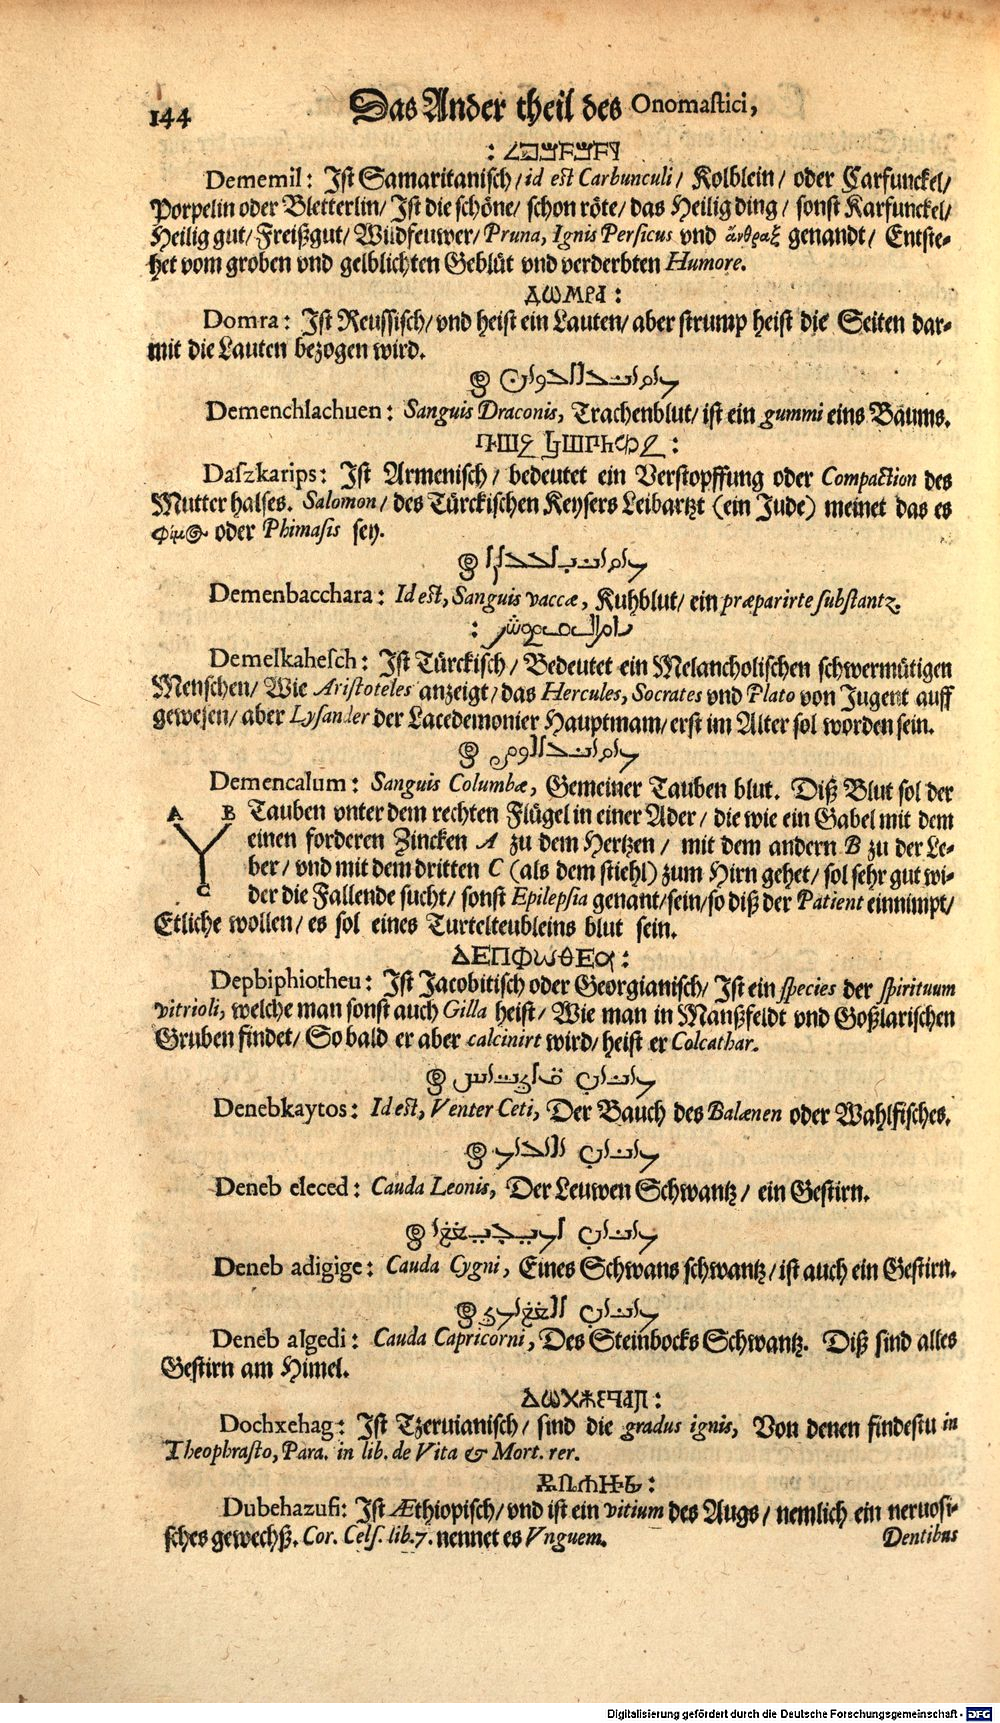 144
Das Ander theil des Onomastici,
Dememil: Ist Samaritanisch/ id est Carbunculi/ Kolblein/ oder Carfunckel/
Porpelin oder Bletterlin/ Ist die schöne/ schon röte/ das Heilig ding/ sonst Karfunckel/
Heilig gut/ Freißgut/ Wildfeuwer/ Pruna, Ignis Persicus vnd ἄνθραξ genandt/ Entste-
het vom groben vnd gelblichten Geblüt vnd verderbten Humore.
Domra: Ist Reussisch/ vnd heist ein Lauten/ aber strump heist die Seiten dar-
mit die Lauten bezogen wird.
Demenchlachuen: Sanguis Draconis, Trachenblut/ ist ein gummi eins Baums.
Daszkarips: Ist Armenisch/ bedeutet ein Verstopffung oder Compaction des
Mutter halses. Salomon/ des Türckischen Keysers Leibartzt (ein Jude) meinet das es
oder Phimasis sey.
Demenbacchara: Id est, Sanguis vaccæ, Kuhblut/ ein præparirte substantz.
Demelkahesch: Ist Türckisch/ Bedeutet ein Melancholischen schwermütigen
Menschen/ Wie Aristoteles anzeigt/ das Hercules, Socrates vnd Plato von Jugent auff
gewesen/ aber Lysander der Lacedemonier Hauptmam/ erst im Alter sol worden sein.
Demencalum: Sanguis Columbæ, Gemeiner Tauben blut. Diß Blut sol der
A B Tauben vnter dem rechten Flügel in einer Ader/ die wie ein Gabel mit dem
einen forderen Zincken A zu dem Hertzen/ mit dem andern B zu der Le-
ber/ vnd mit dem dritten C (als dem stiehl) zum Hirn gehet/ sol sehr gut wi-
C der die Fallende sucht/ sonst Epilepsia genant/ sein/ so diß der Patient einnimpt/
Etliche wollen/ es sol eines Turtelteubleins blut sein.
Depbiphiotheu: Ist Jacobitisch oder Georgianisch/ Ist ein species der spirituum
vitrioli, welche man sonst auch Gilla heist/ Wie man in Manßfeldt vnd Goßlarischen
Gruben findet/ So bald er aber calcinirt wird/ heist er Colcathar.
Denebkaytos: Id est, Venter Ceti, Der Bauch des Balænen oder Wahlfisches.
Deneb eleced: Cauda Leonis, Der Leuwen Schwantz/ ein Gestirn.
Deneb adigige: Cauda Cygni, Eines Schwans schwantz/ ist auch ein Gestirn.
Deneb algedi: Cauda Capricorni, Des Steinbocks Schwantz. Diß sind alles
Gestirn am Himel.
Dochxehag: Ist Tzeruianisch/ sind die gradus ignis, Von denen findestu in
Theophrasto, Para. in lib. de Vita & Mort. rer.
Dubehazufi: Ist Æthiopisch/ vnd ist ein vitium des Augs/ nemlich ein neruosi-
sches gewechß. Cor. Cels. lib. 7. nennet es Vnguem.
Dentibus
Digitalisierung gefördert durch die Deutsche Forschungsgemeinschaft - DFG